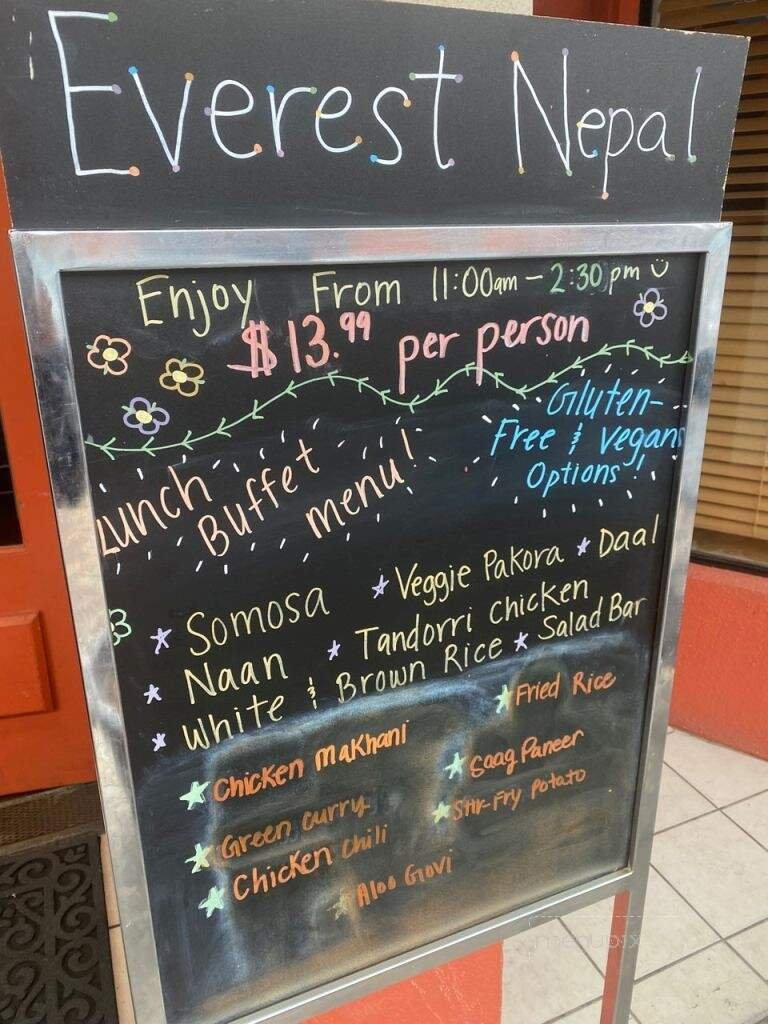 Everest Nepal
Enjoy From 11:00am - 2:30pm
$13.99 per person
Gluten-
Free & vegans
Options!
Lunch
Buffet
menu!
Somosa
Veggie Pakora
Daal
Naan
Tandorri chicken
White & Brown Rice
Salad Bar
Fried Rice
Chicken Makhani
Saag Paneer
Green curry
Stir-Fry potato
Chicken chili
Aloo Govi
menupix